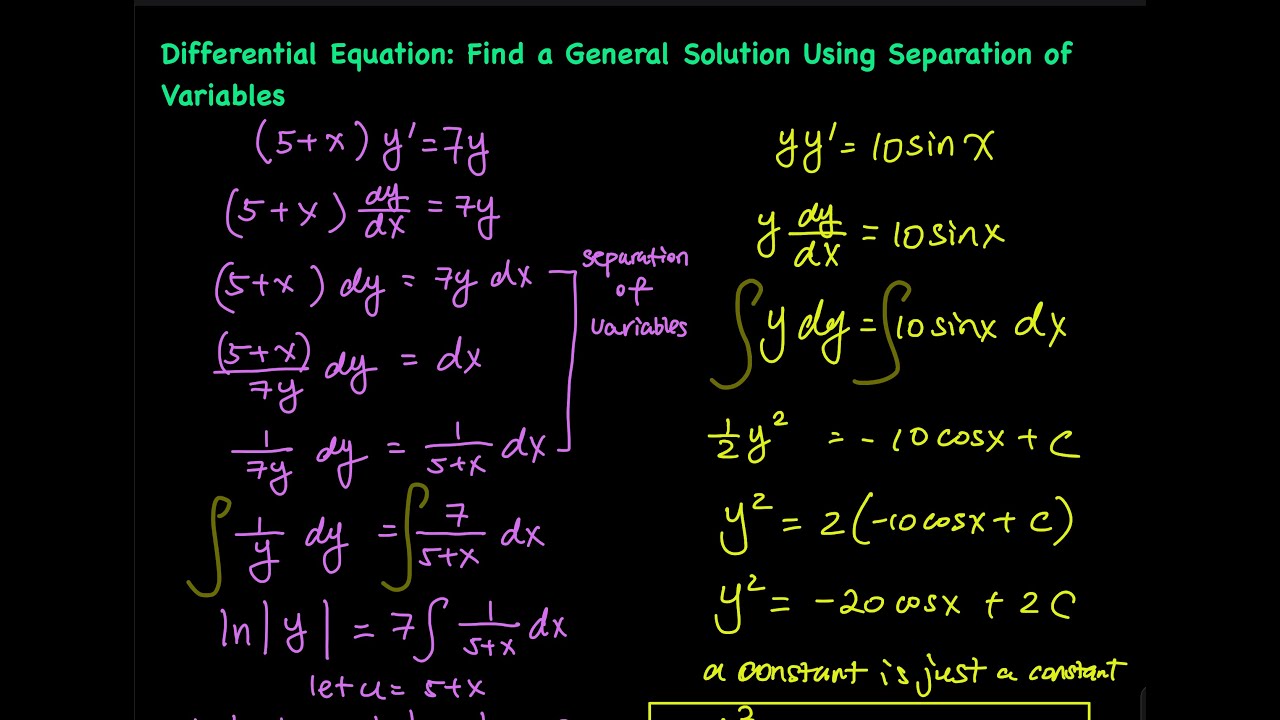 Differential Equation: Find a General Solution Using Separation of
Variables
(5+x) y' = 7y
(5+x) dy/dx = 7y
(5+x) dy = 7y dx
(5+x)/7y dy = dx
1/7y dy = 1/5+x dx
separation
of
variables
∫ 1/y dy = ∫ 7/5+x dx
ln|y| = 7∫ 1/5+x dx
let u = 5+x
yy' = 10sinx
y dy/dx = 10sinx
∫ y dy = ∫ 10sinx dx
1/2 y² = -10cosx + C
y² = 2(-10cosx + C)
y² = -20cosx + 2C
a constant is just a constant